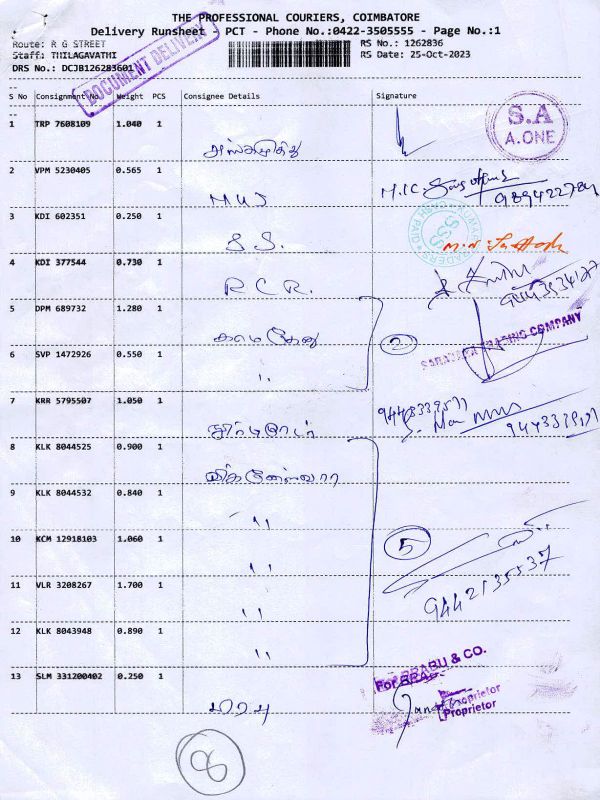 THE PROFESSIONAL COURIERS, COIMBATORE
Delivery Runsheet - PCT - Phone No.:0422-3505555 - Page No.:1
Route: R G STREET
RS No.: 1262836
Staff: THILAGAVATHI
RS Date: 25-Oct-2023
DRS No.: DCJB126283601
DOCUMENT DELIVERY
S No Consignment No Weight PCS Consignee Details Signature
1 TRP 7608109 1.040 1
S.A
A.ONE
2 VPM 5230405 0.565 1
3 KDI 602351 0.250 1
S.S.
4 KDI 377544 0.730 1
R.C.R.
5 DPM 689732 1.280 1
2
TRADING COMPANY
6 SVP 1472926 0.550 1
"
7 KRR 5795507 1.050 1
8 KLK 8044525 0.900 1
விக்னேஸ்வரா
9 KLK 8044532 0.840 1
"
10 KCM 12918103 1.060 1
"
5
9442135537
11 VLR 3208267 1.700 1
"
12 KLK 8043948 0.890 1
"
For PRABU & CO.
13 SLM 331200402 0.250 1
பிரபு
Proprietor
8